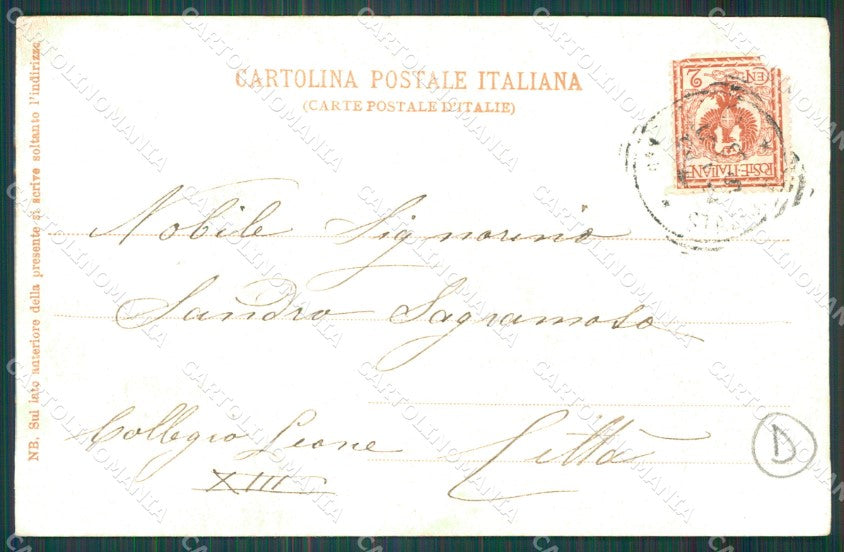 CARTOLINA POSTALE ITALIANA
(CARTE POSTALE D'ITALIE)
NB. Sul lato anteriore della presente si scrive soltanto l'indirizzo.
2
CEN
POSTE·ITALIANE
Nobile Signorino
Sandro Sagramoso
Collegio Leone
XIII
Città
D
CARTOLINOMANIA